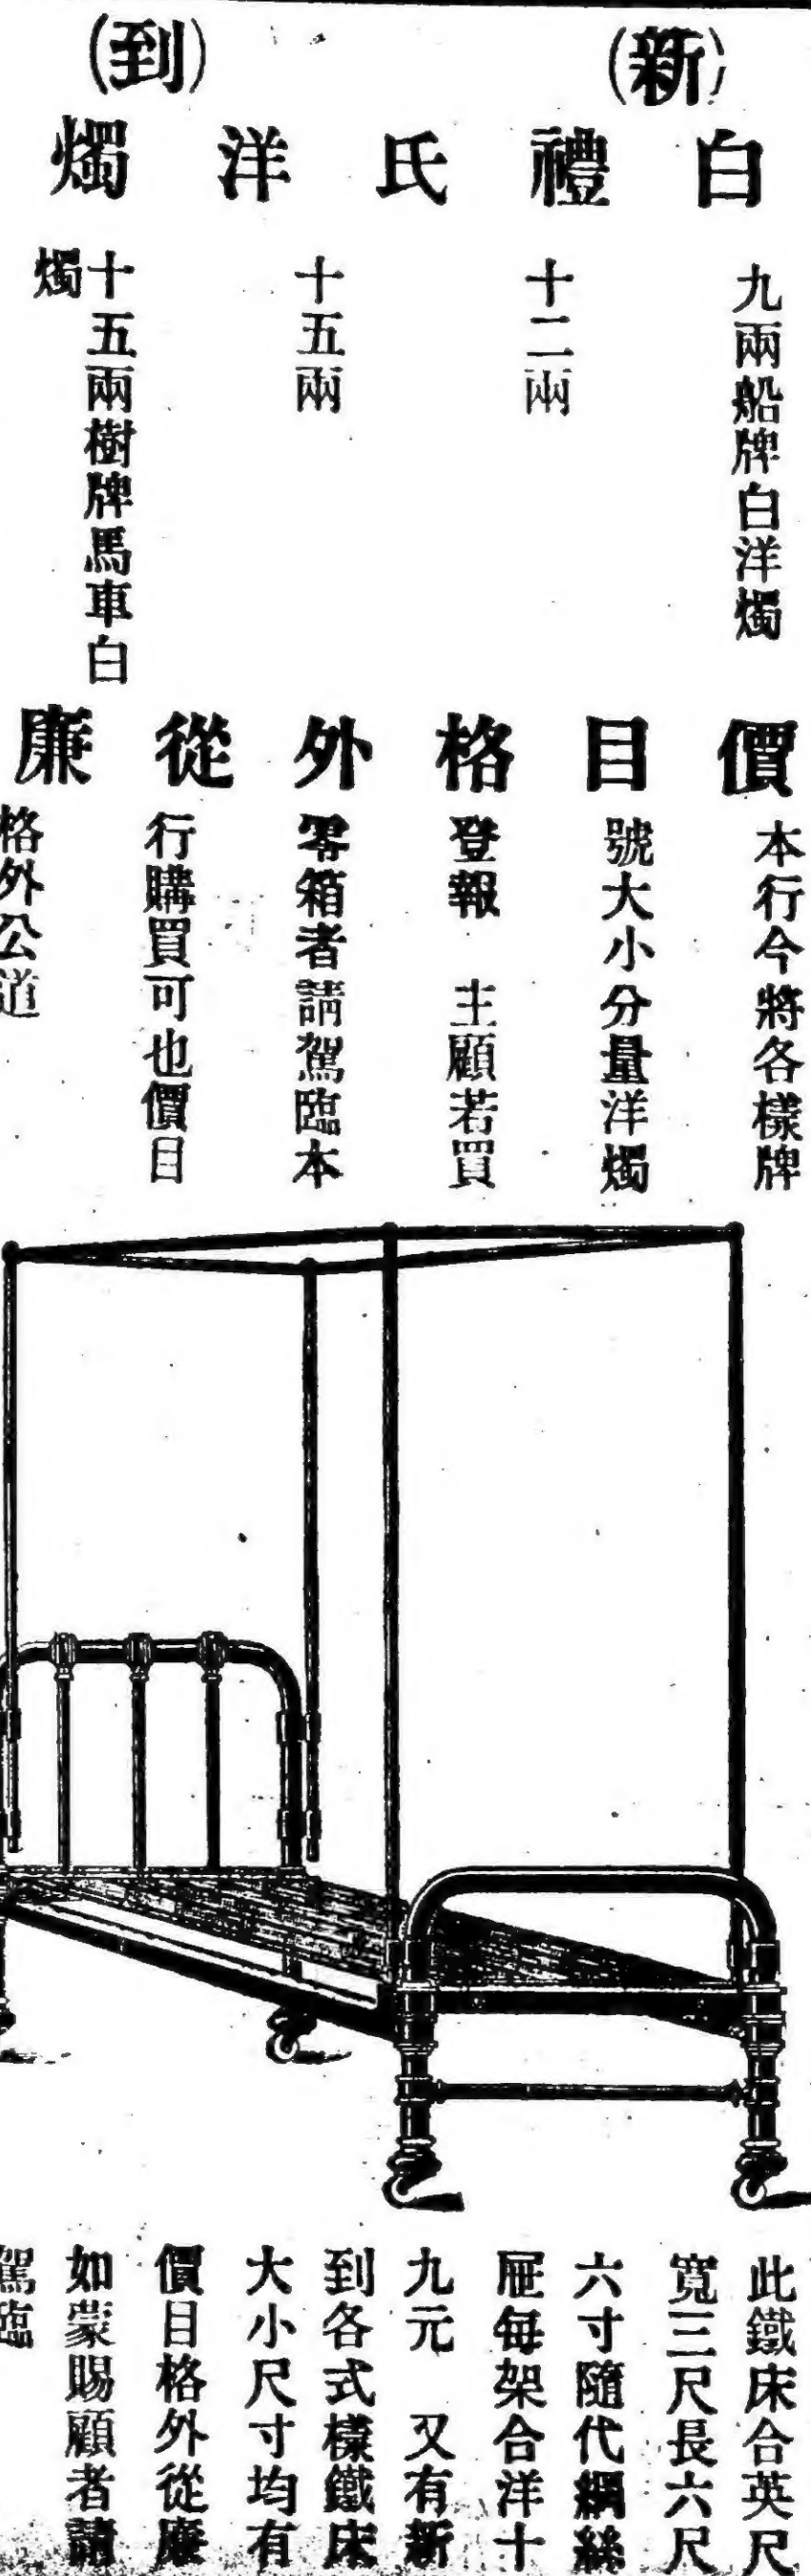 (新)(到)
白禮氏洋燭
九兩船牌白洋燭
十二兩
十五兩
十五兩樹牌馬車白
燭
價目格外從廉
本行今將各樣牌
號大小分量洋燭
登報　主顧若買
零箱者請駕臨本
行購買可也價目
格外公道
此鐵床合英尺
寬三尺長六尺
六寸隨代綱絲
屜每架合洋十
九元　又有新
到各式樣鐵床
大小尺寸均有
價目格外從廉
如蒙賜顧者請
駕臨